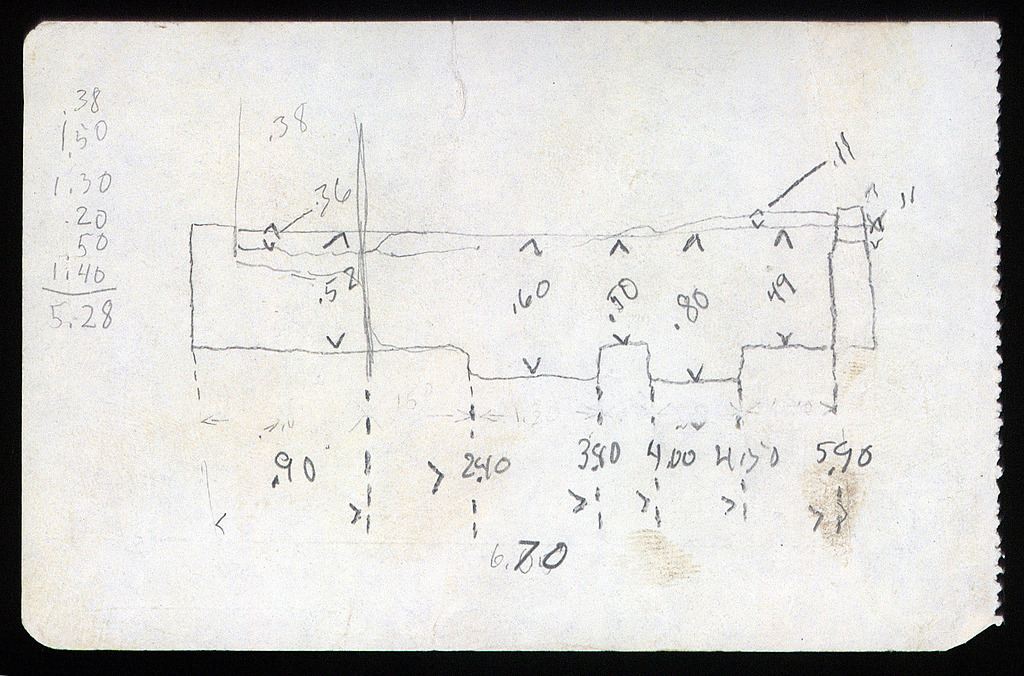 .38
1.50
1.30
.20
.50
1.40
5.28
.38
.36
.11
11
.58
.60
.50
.80
.49
1.30
.90
2.40
3.80
4.00
4.50
5.90
6.70